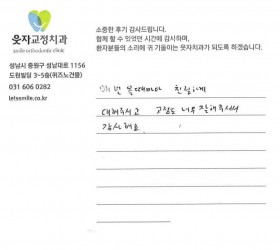 웃자교정치과
smile orthodontic clinic
성남시 중원구 성남대로 1156
도원빌딩 3~5층(퀴즈노건물)
031 606 0282
letssmile.co.kr
소중한 후기 감사드립니다.
함께 할 수 있었던 시간에 감사하며,
환자분들의 소리에 귀 기울이는 웃자치과가 되도록 하겠습니다.
매번 올때마다 친절하게
대해주시고 교정도 너무 잘해주셔서
감사해요